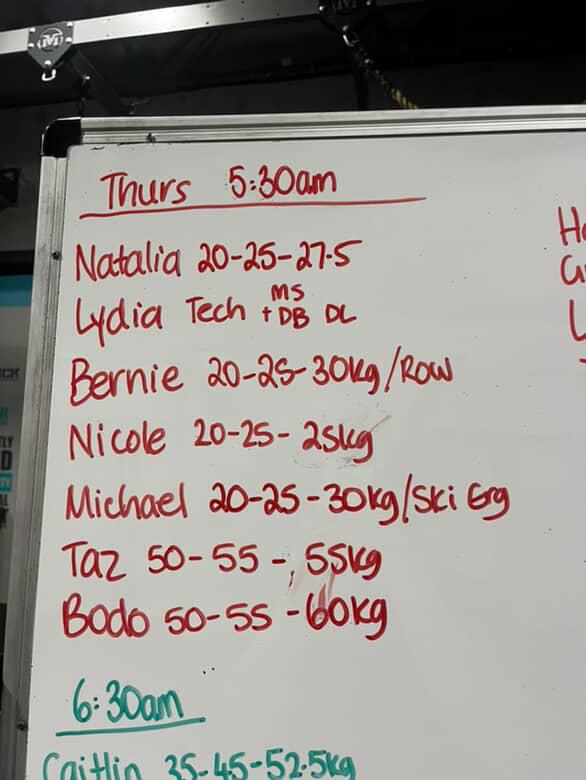 Thurs 5:30am
Natalia 20-25-27.5
MS
Lydia Tech + DB DL
Bernie 20-25-30kg/Row
Nicole 20-25-25kg
Michael 20-25-30kg/Ski Erg
Taz 50-55-55kg
Bodo 50-55-60kg
6:30am
Caitlin 35-45-52.5kg
M